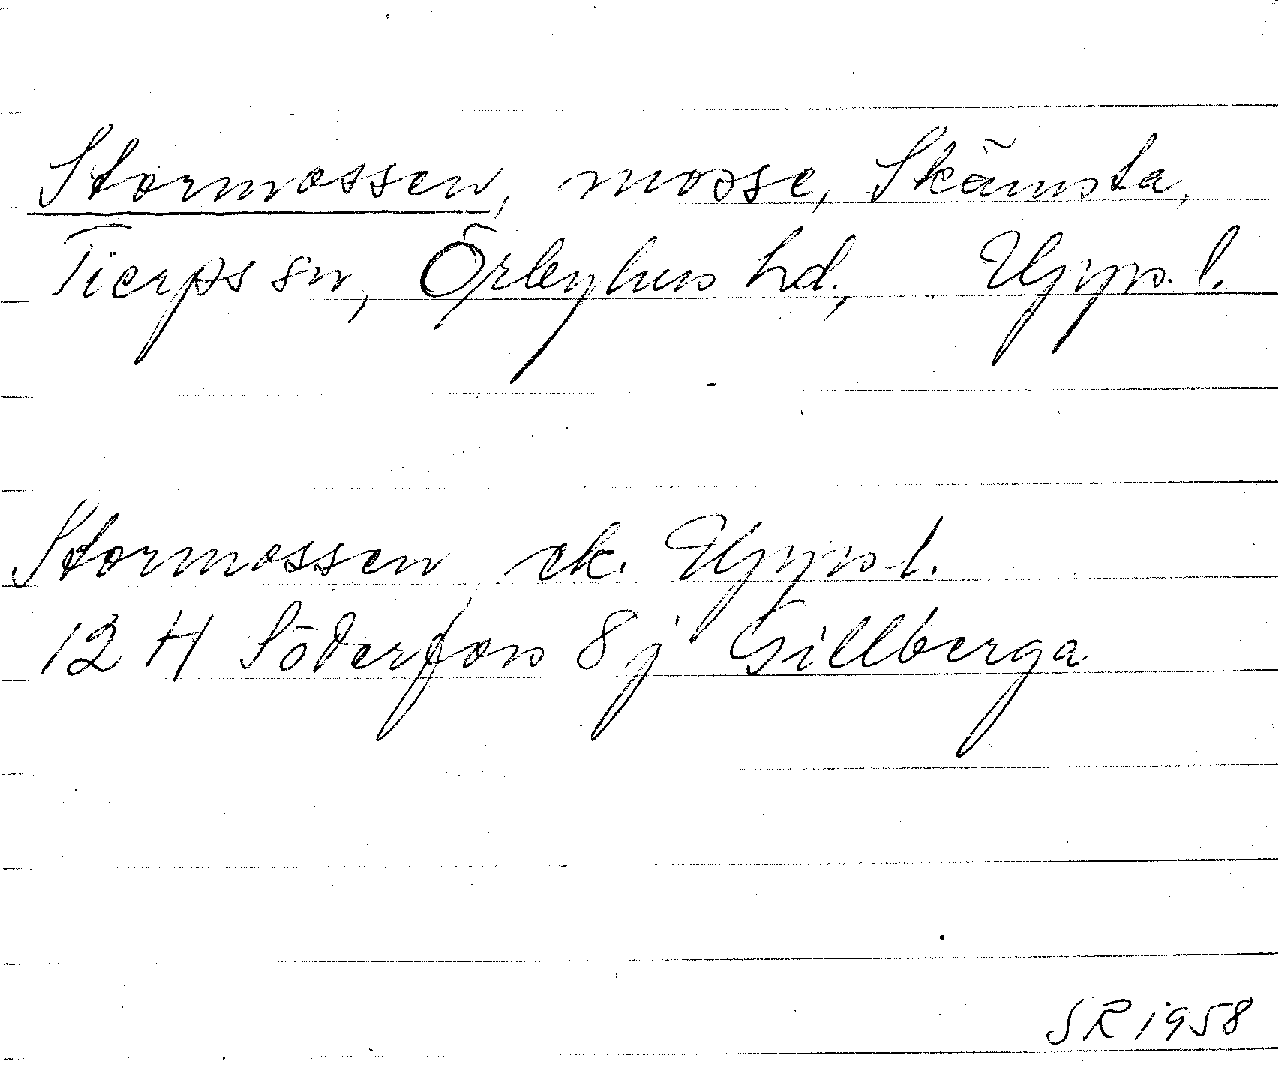 Stormossen, mosse, Skämsta,
Tierps sn, Örbyhus hd., Upps. l.
Stormossen ek. Upps. l.
12 H Söderfors 8 j Gillberga
SR 1958